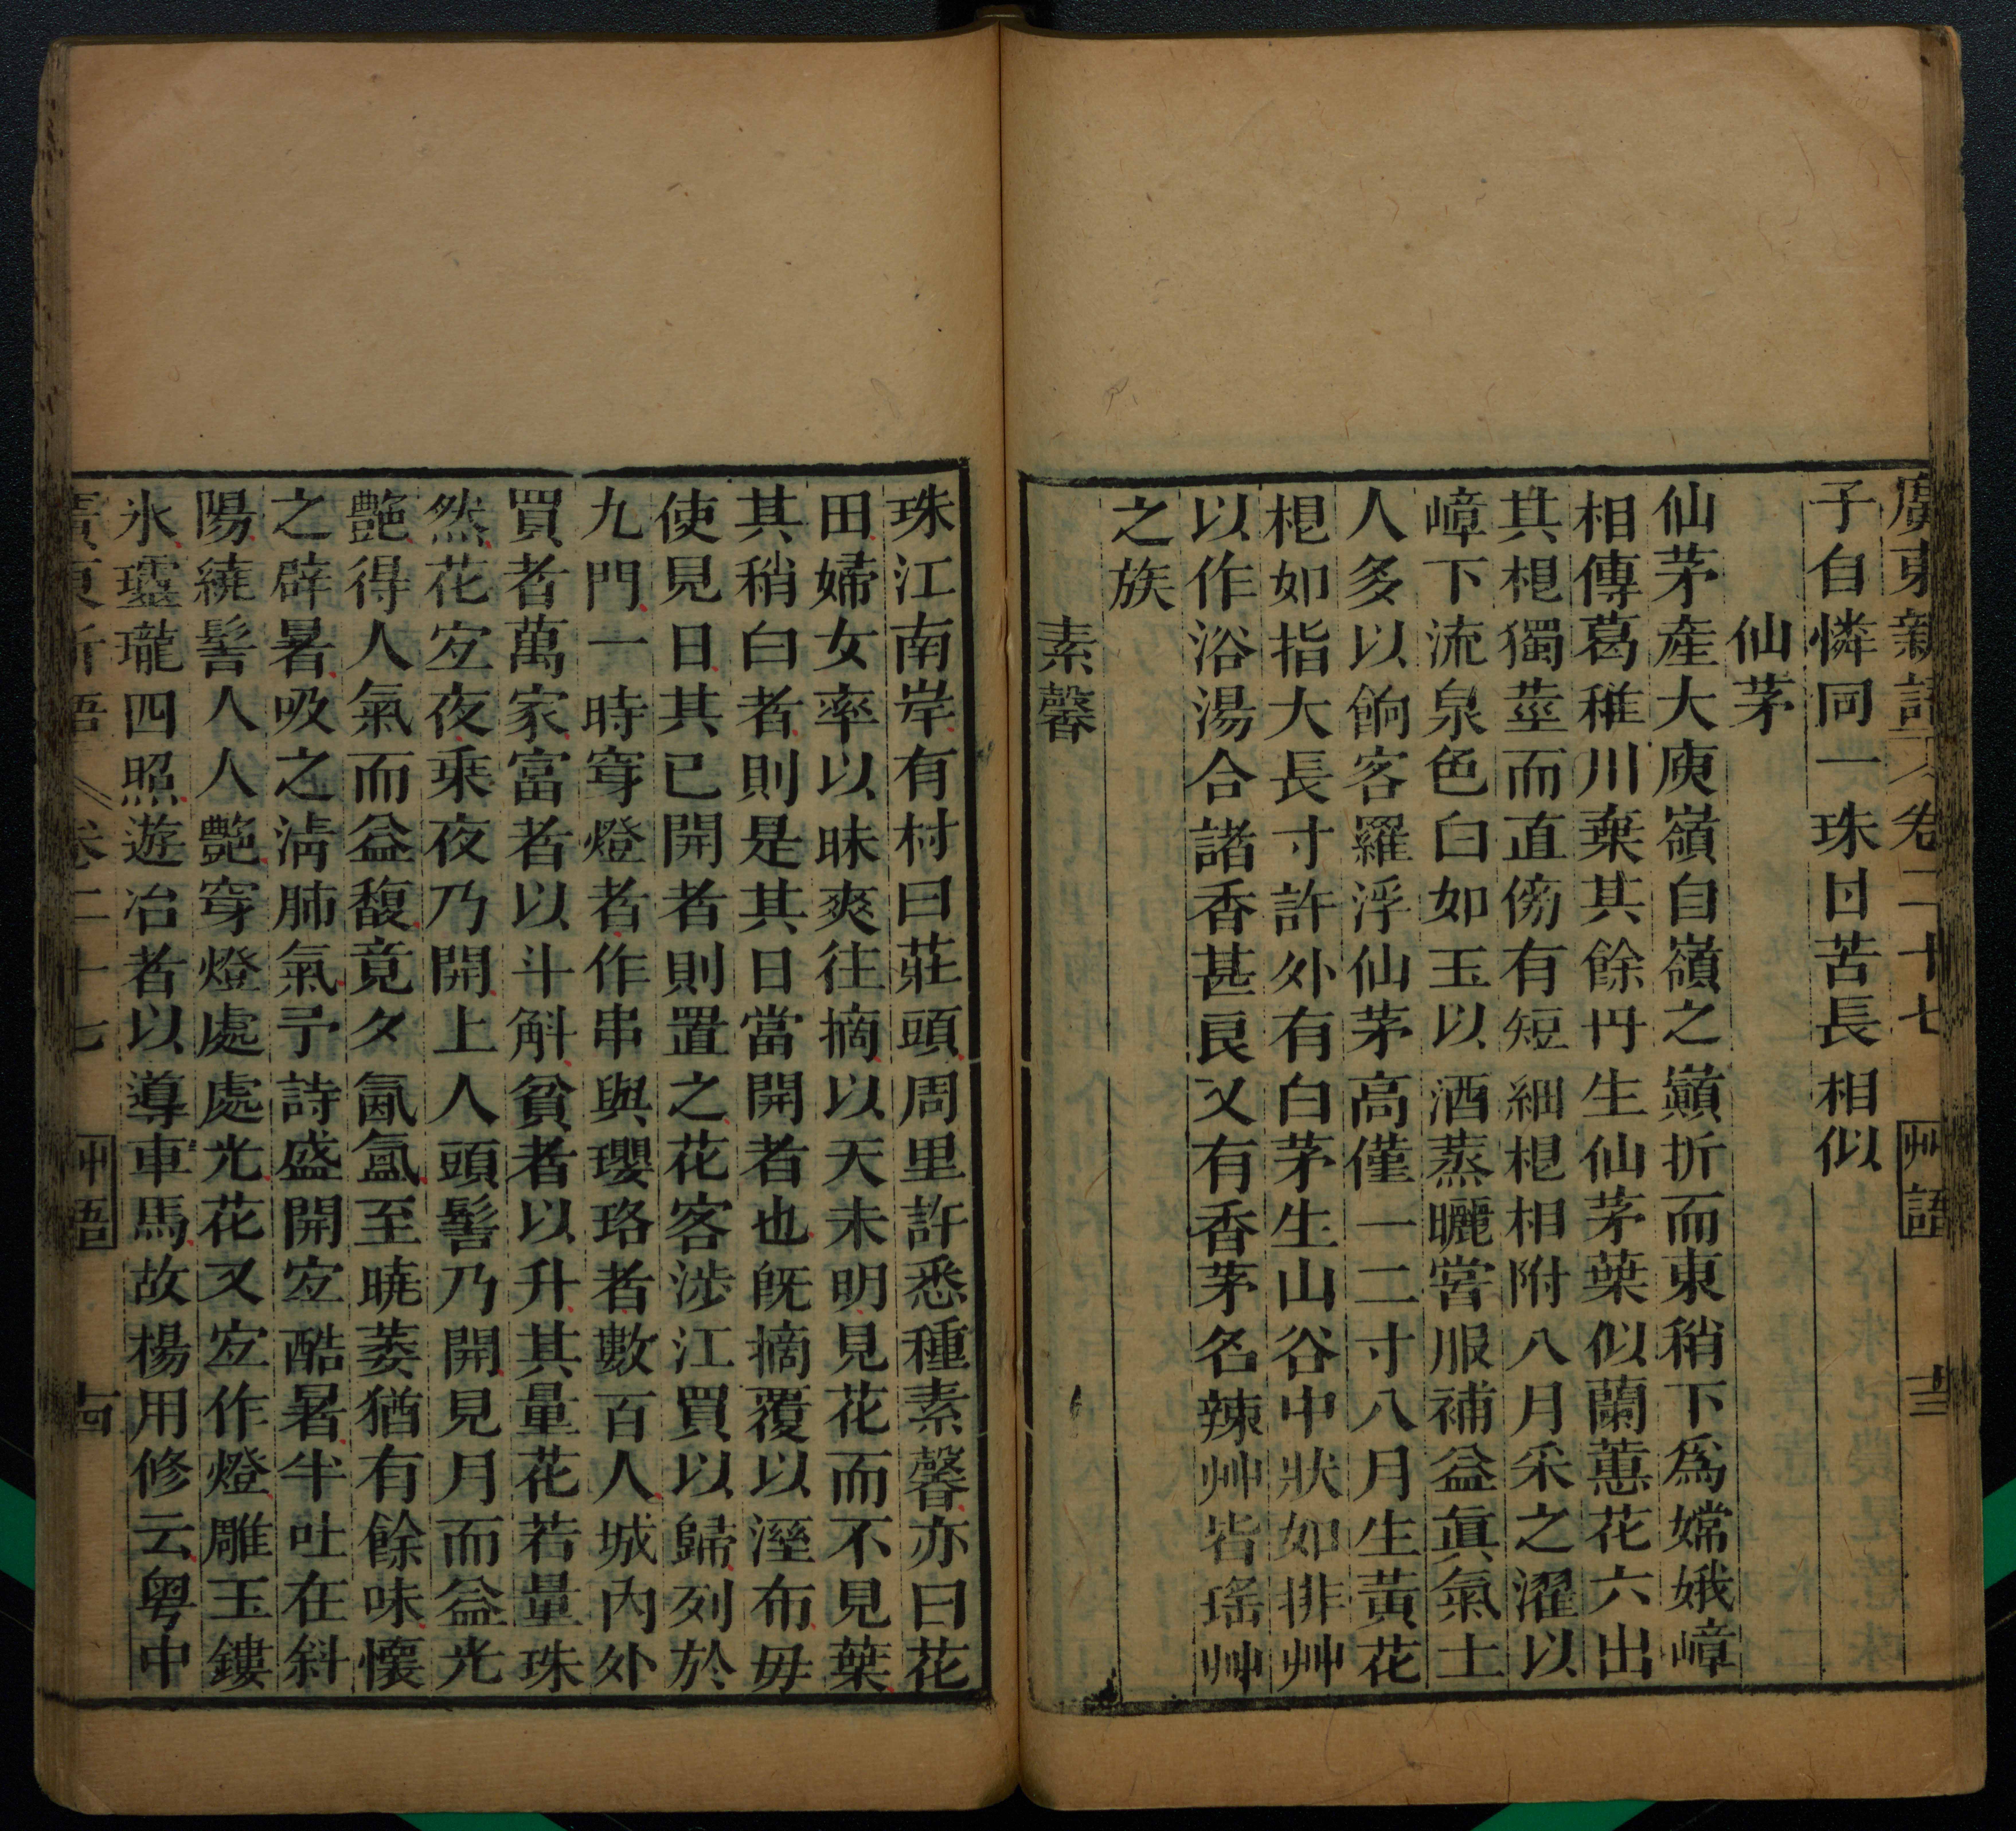 廣東新語 卷二十七 艸語 十三
子自憐同一珠甘苦長相似
仙茅
仙茅產大庾嶺自嶺之巔折而東稍下爲嫦娥嶂
相傳葛稚川棄其餘丹生仙茅葉似蘭蕙花六出
其根獨莖而直傍有短細根相附八月采之濯以
嶂下流泉色白如玉以酒蒸曬嘗服補益眞氣土
人多以餉客羅浮仙茅高僅一二寸八月生黃花
根如指大長寸許外有白茅生山谷中狀如排艸
以作浴湯合諸香甚良又有香茅名辣艸皆瑤艸
之族
素馨
珠江南岸有村曰莊頭周里許悉種素馨亦曰花
田婦女率以昧爽往摘以天未明見花而不見葉
其稍白者則是其日當開者也旣摘覆以溼布毋
使見日其已開者則置之花客涉江買以歸列於
九門一時穿燈者作串與瓔珞者數百人城內外
買者萬家富者以斗斛貧者以升其量花若量珠
然花宜夜乘夜乃開上人頭髻乃開見月而益光
艷得人氣而益馥竟夕氤氳至曉萎猶有餘味懷
之辟暑吸之淸肺氣予詩盛開宜酷暑半吐在斜
陽繞髻人人艷穿燈處處光花又宜作燈雕玉鏤
氷瓏瓏四照遊冶者以導車馬故楊用修云粤中
廣東新語 卷二十七 艸語 十四